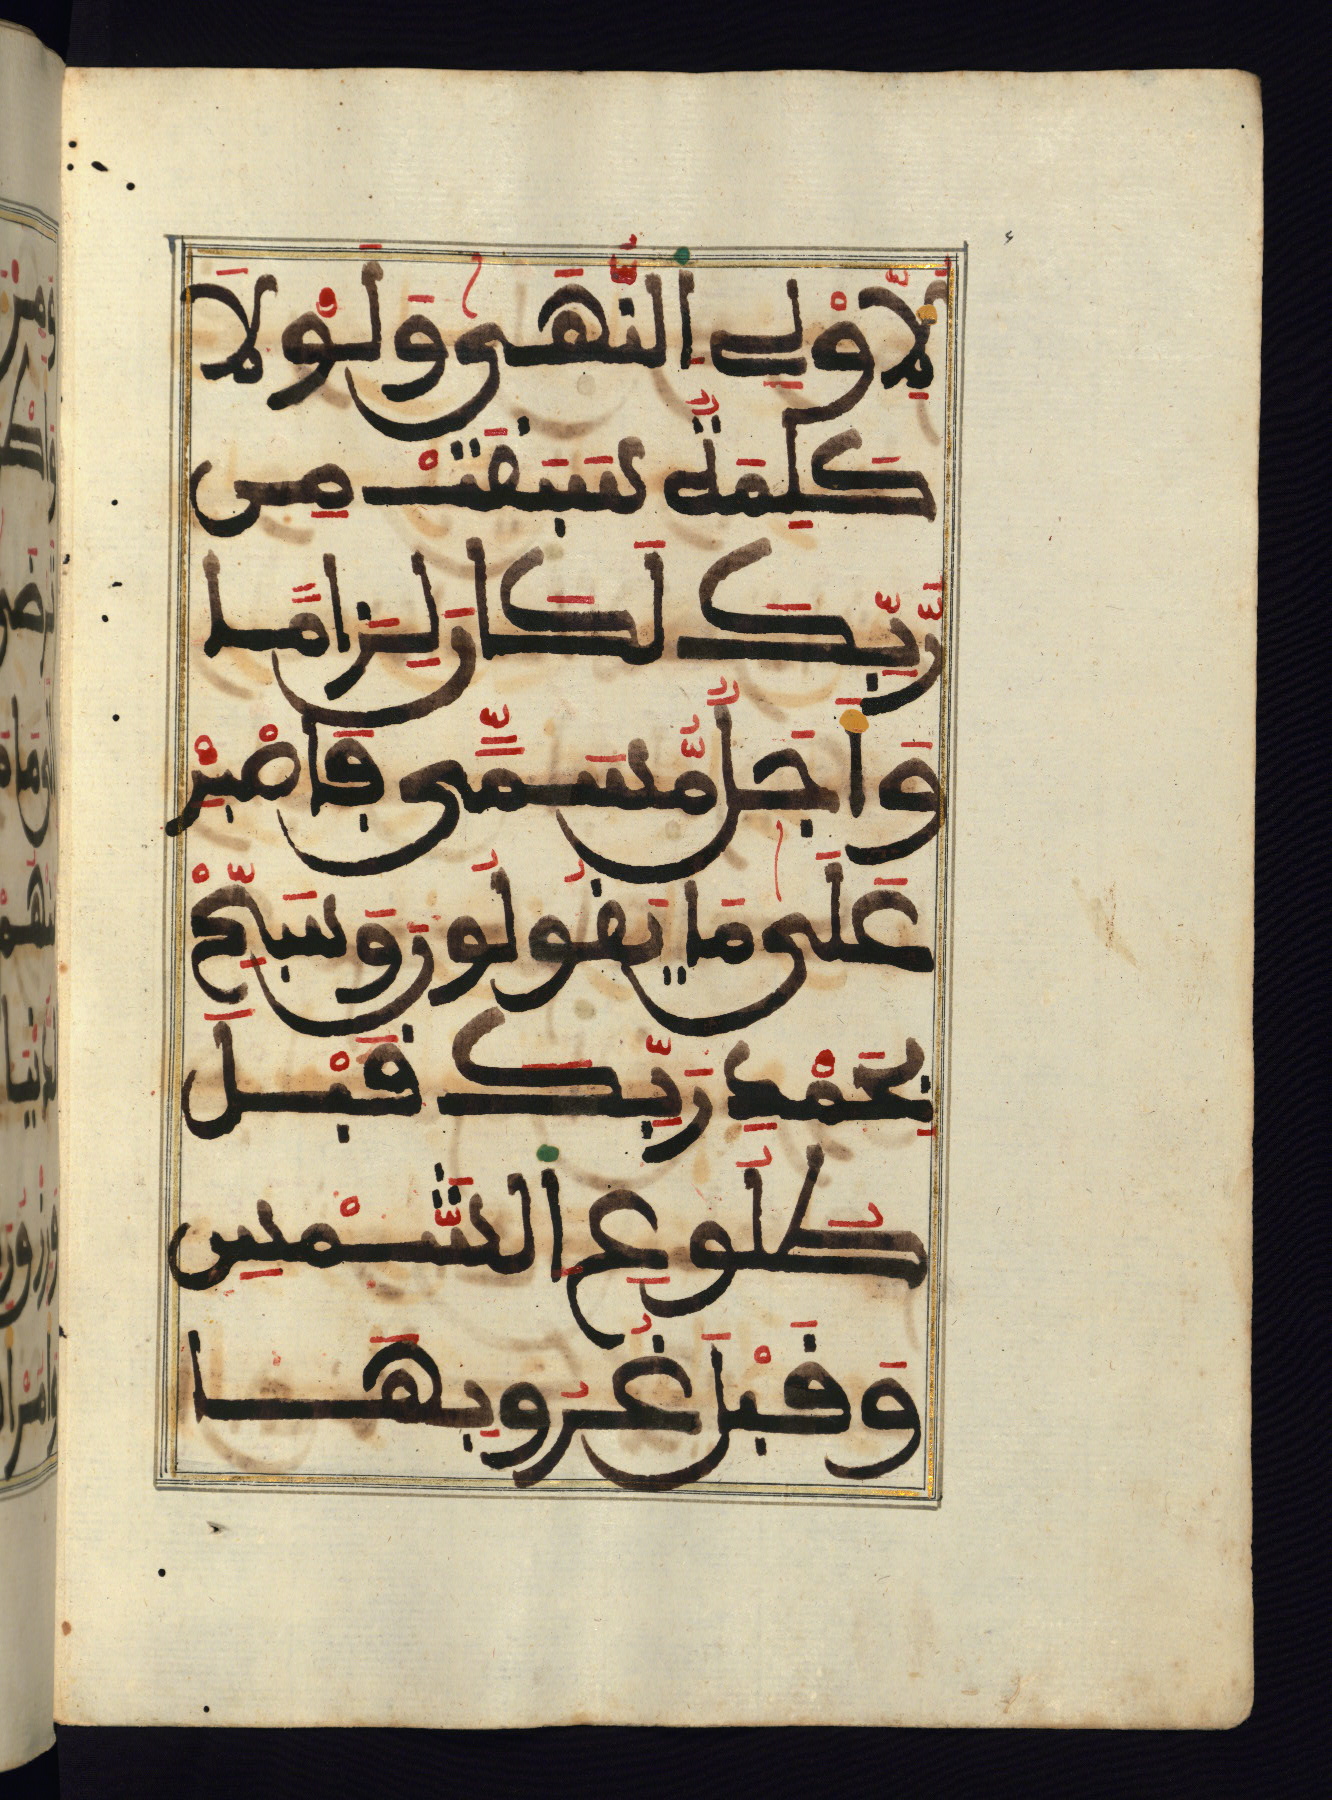 لِّأُوْلِے اِ۬لنُّهَىٰ وَلَوْلَا
كَلِمَةٌ سَبَقَتْ مِن
رَّبِّكَ لَكَانَ لِزَاماً
وَأَجَلٌ مُّسَمّىً فَاصْبِرْ
عَلَىٰ مَا يَقُولُونَ وَسَبِّحْ
بِحَمْدِ رَبِّكَ قَبْلَ
طُلُوعِ اِ۬لشَّمْسِ
وَقَبْلَ غُرُوبِهَا